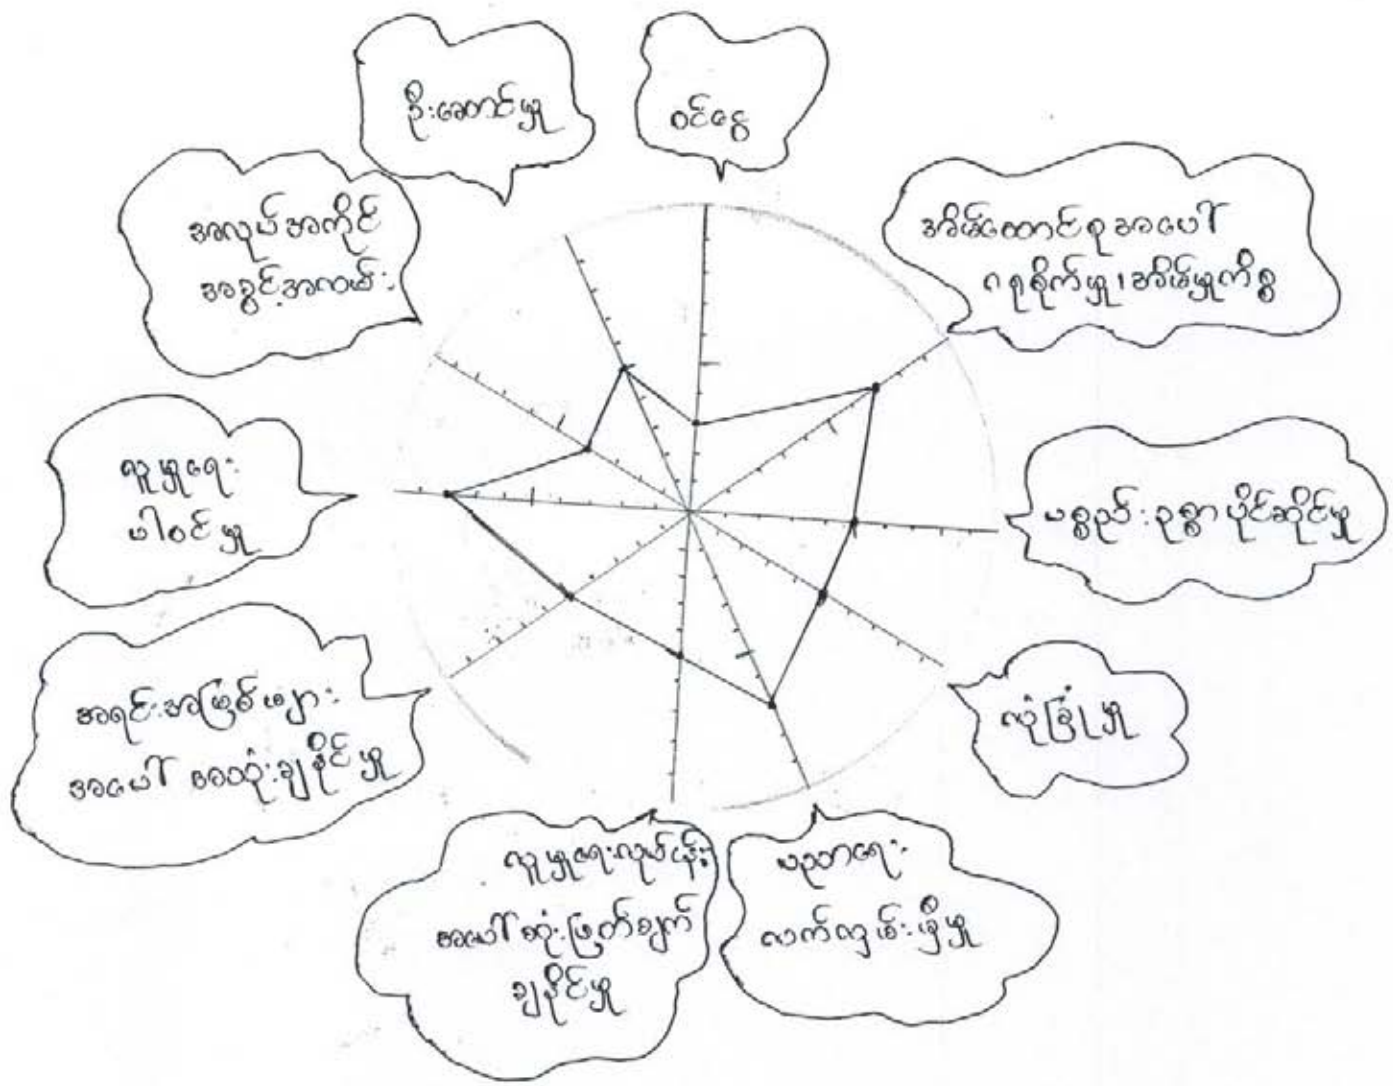 ဦးဆောင်မှု
ဝင်ငွေ
အိမ်ထောင်စုအပေါ်
ဂရုစိုက်မှု၊အိမ်မှုကိစ္စ
ပစ္စည်းဥစ္စာပိုင်ဆိုင်မှု
လုံခြုံမှု
ပညာရေး
လက်လှမ်းမှီမှု
လူမှုရေးလုပ်ငန်း
အပေါ်ဆုံးဖြတ်ချက်
ချနိုင်မှု
အရင်းအမြစ်များ
အပေါ် အသုံးချနိုင်မှု
လူမှုရေး
ပါဝင်မှု
အလုပ်အကိုင်
အခွင့်အလမ်း